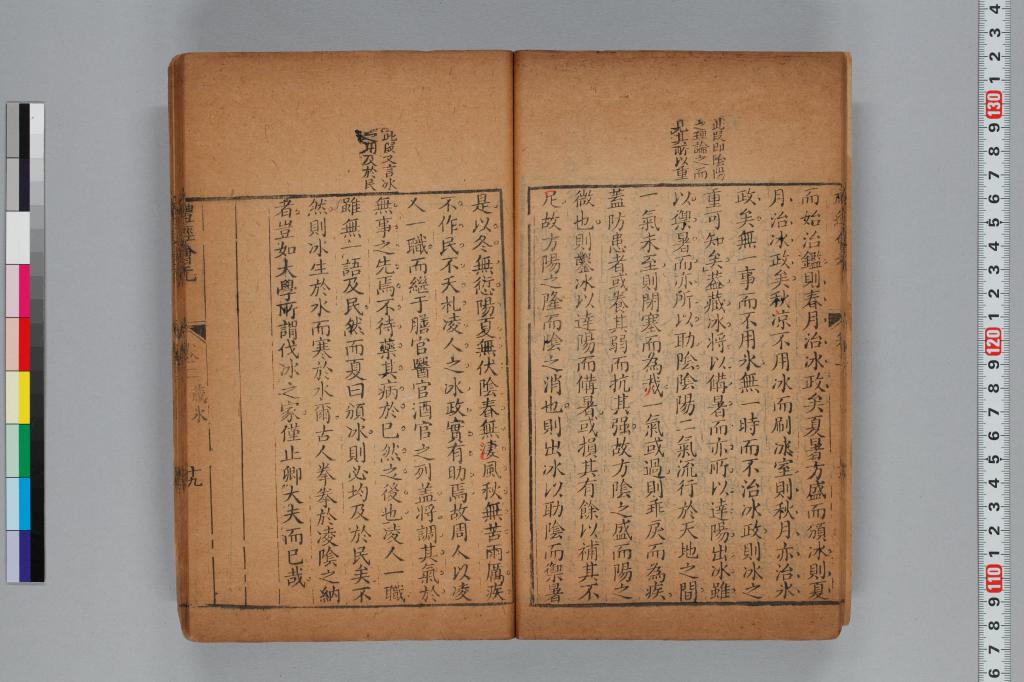 此段即陰陽
之理論之而
見其所以重
而始治鑑則春月治冰政矣夏暑方盛而頒冰則夏
月治冰政矣秋涼不用冰而刷冰室則秋月亦治冰
政矣無一事而不用氷無一時而不治冰政則冰之
重可知矣蓋藏冰將以備暑而亦所以達陽出冰雖
以禦暑而亦所以助陰陰陽二氣流行於天地之間
一氣未至則閉塞而為烖一氣或過則乖戾而為疾
蓋防患者或養其弱而抗其强故方陰之盛而陽之
微也則鑿冰以達陽而備暑或損其有餘以補其不
足故方陽之隆而陰之消也則出冰以助陰而禦暑
此段又言冰
之用及於民
是以冬無愆陽夏無伏陰春無淒風秋無苦雨厲疾
不作民不夭札凌人之冰政實有助焉故周人以凌
人一職而繼于膳官醫官酒官之列盖將調其氣於
無事之先焉不待藥其病於已然之後也凌人一職
雖無一語及民然而夏曰頒冰則必均及於民矣不
然則冰生於水而寒於水爾古人拳拳於凌陰之納
者豈如大學所謂伐冰之家僅止卿大夫而已哉
禮經會元
藏氷
十九